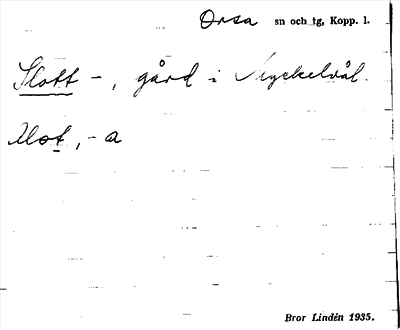 Orsa sn och tg, Kopp. l.
Slott -, gård i Nyckelvål.
slot, -a
Bror Lindén 1935.